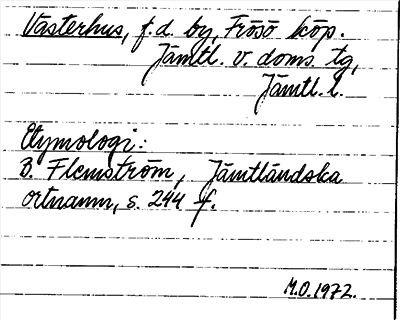 Västerhus, f.d. by, Frösö köp.
Jämtl. v. doms. tg,
Jämtl. l.
Etymologi:
B. Flemström, Jämtländska
ortnamn, s. 244 f.
M.O. 1972.